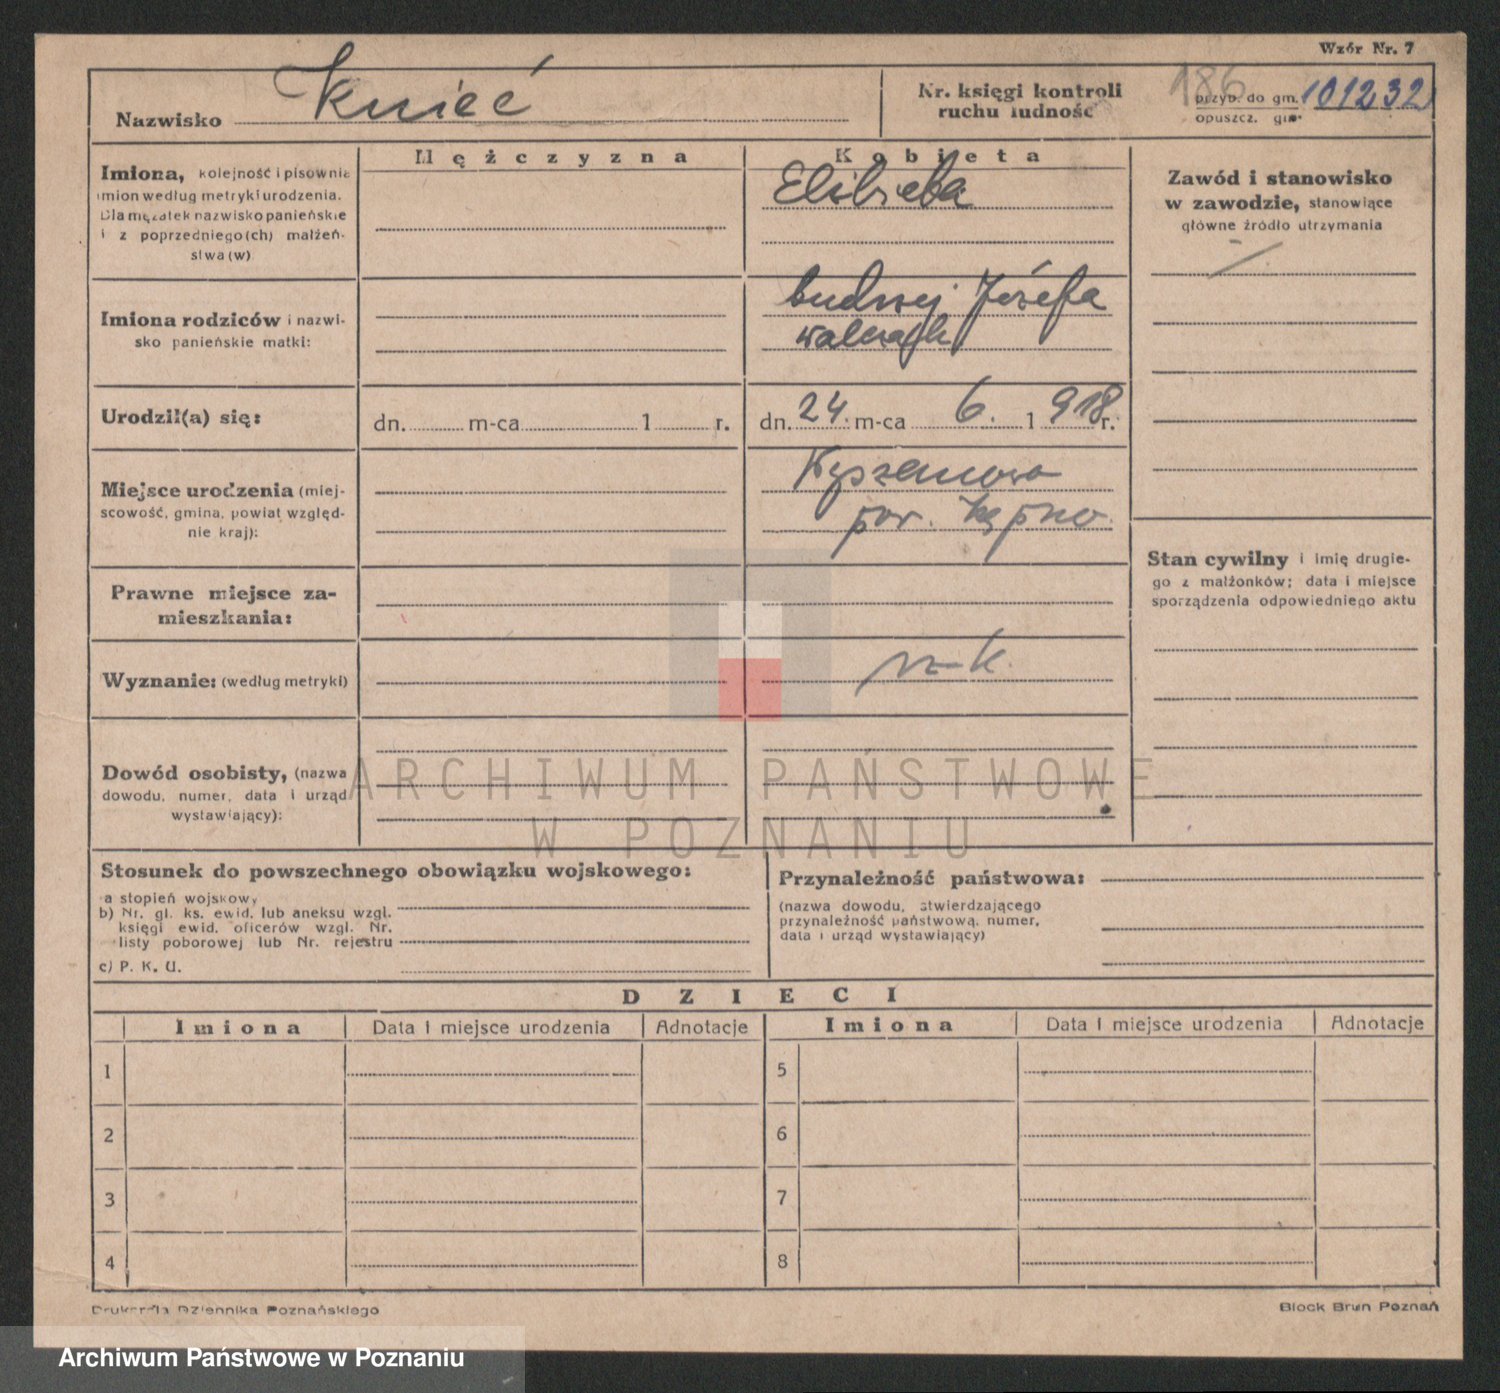 Wzór Nr. 7
Nazwisko Knieć
Nr. księgi kontroli
ruchu ludność
186
przyb. do gm. 101232
opuszcz. gm.
Mężczyzna
Kobieta
Imiona, kolejność i pisownia
imion według metryki urodzenia.
Dla mężatek nazwisko panieńskie
i z poprzedniego(ch) małżeń-
stwa(w)
Elżbieta
Zawód i stanowisko
w zawodzie, stanowiące
główne źródło utrzymania
Imiona rodziców i nazwi-
sko panieńskie matki:
Józefa
Urodził(a) się:
dn. m-ca 1 r.
dn. 24. m-ca 6. 1 918 r.
Miejsce urodzenia (miej-
scowość, gmina, powiat względ-
nie kraj):
pow. Kępno.
Stan cywilny i imię drugie-
go z małżonków; data i miejsce
sporządzenia odpowiedniego aktu
Prawne miejsce za-
mieszkania:
Wyznanie: (według metryki)
rz-k.
Dowód osobisty, (nazwa
dowodu, numer, data i urząd
wystawiający):
ARCHIWUM PAŃSTWOWE
W POZNANIU
Stosunek do powszechnego obowiązku wojskowego:
a stopień wojskowy
b) Nr. gł. ks. ewid. lub aneksu wzgl.
księgi ewid. oficerów wzgl. Nr.
listy poborowej lub Nr. rejestru
c) P. K. U.
Przynależność państwowa:
(nazwa dowodu, stwierdzającego
przynależność państwową, numer,
data i urząd wystawiający)
DZIECI
Imiona Data i miejsce urodzenia Adnotacje Imiona Data i miejsce urodzenia Adnotacje
1 5
2 6
3 7
4 8
Drukarnia Dziennika Poznańskiego
Block Brun Poznań
Archiwum Państwowe w Poznaniu